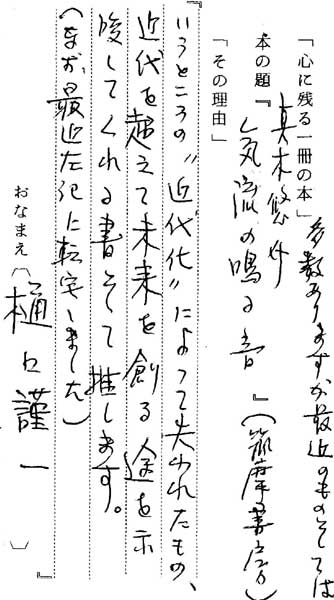 「心に残る一冊の本」多数ありますが最近のものとしては
真木悠介
本の題『気流の鳴る音』(筑摩書房)
「その理由」
いうところの〝近代化〟によって失われたもの、
近代を越えて未来を創る途を示
唆してくれる書として推します。
(なお、最近左記に転宅しました)
おなまえ(樋口謹一)